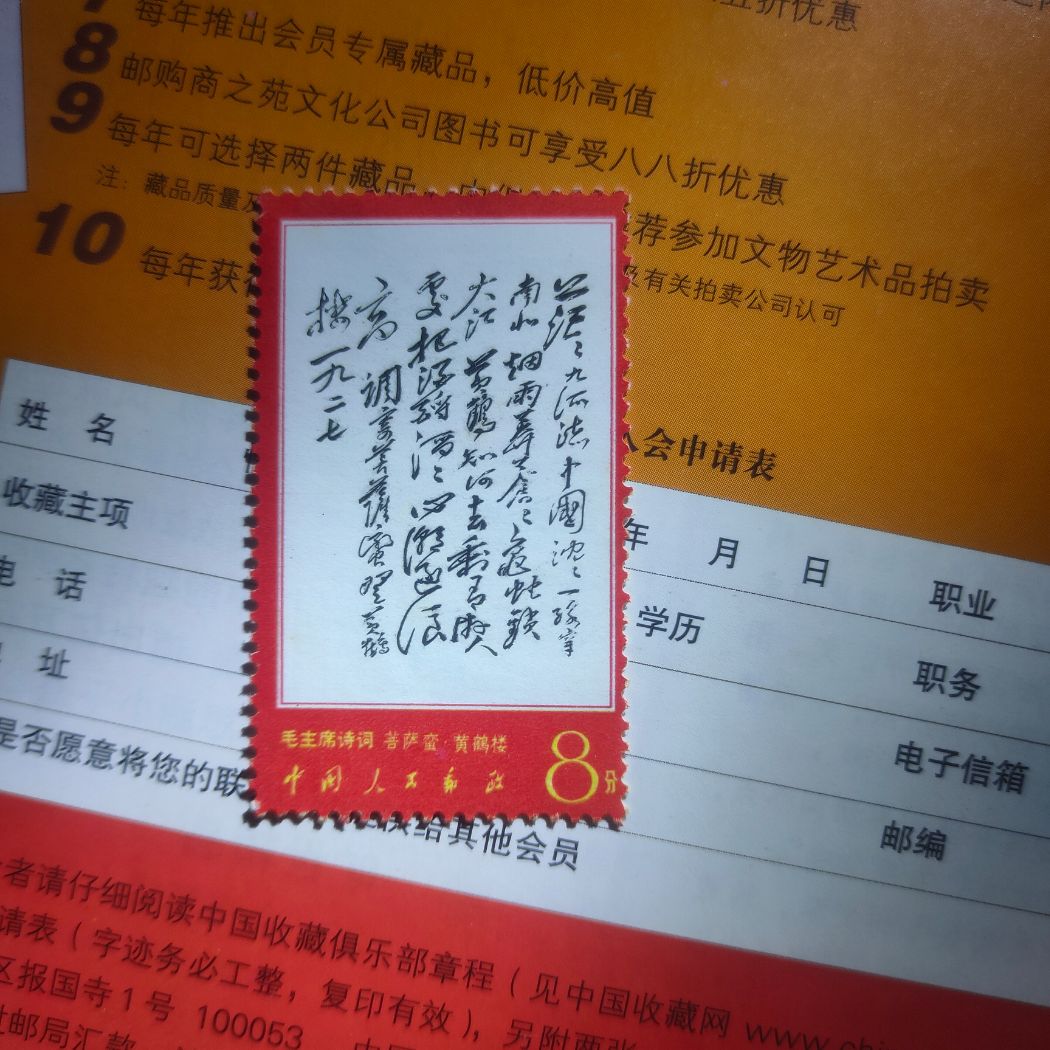 五折优惠
每年推出会员专属藏品，低价高值
8 邮购商之苑文化公司图书可享受八八折优惠
9 每年可选择两件藏品，
荐参加文物艺术品拍卖
注：藏品质量及
及有关拍卖公司认可
10 每年获
入会申请表
姓 名
年 月 日
职业
收藏主项
学历
职务
电 话
电子信箱
址
邮编
是否愿意将您的联
给其他会员
茫茫九派流中国沈沈一线穿
南北烟雨莽苍苍龟蛇锁
大江黄鹤知何去剩有游人
处把酒酹滔滔心潮逐浪
高 调寄菩萨蛮登黄鹤
楼一九二七
毛主席诗词 菩萨蛮·黄鹤楼
中国人民邮政
8分
者请仔细阅读中国收藏俱乐部章程（见中国收藏网 www.chi
请表（字迹务必工整，复印有效），另附两张
区报国寺1号 100053
过邮局汇款